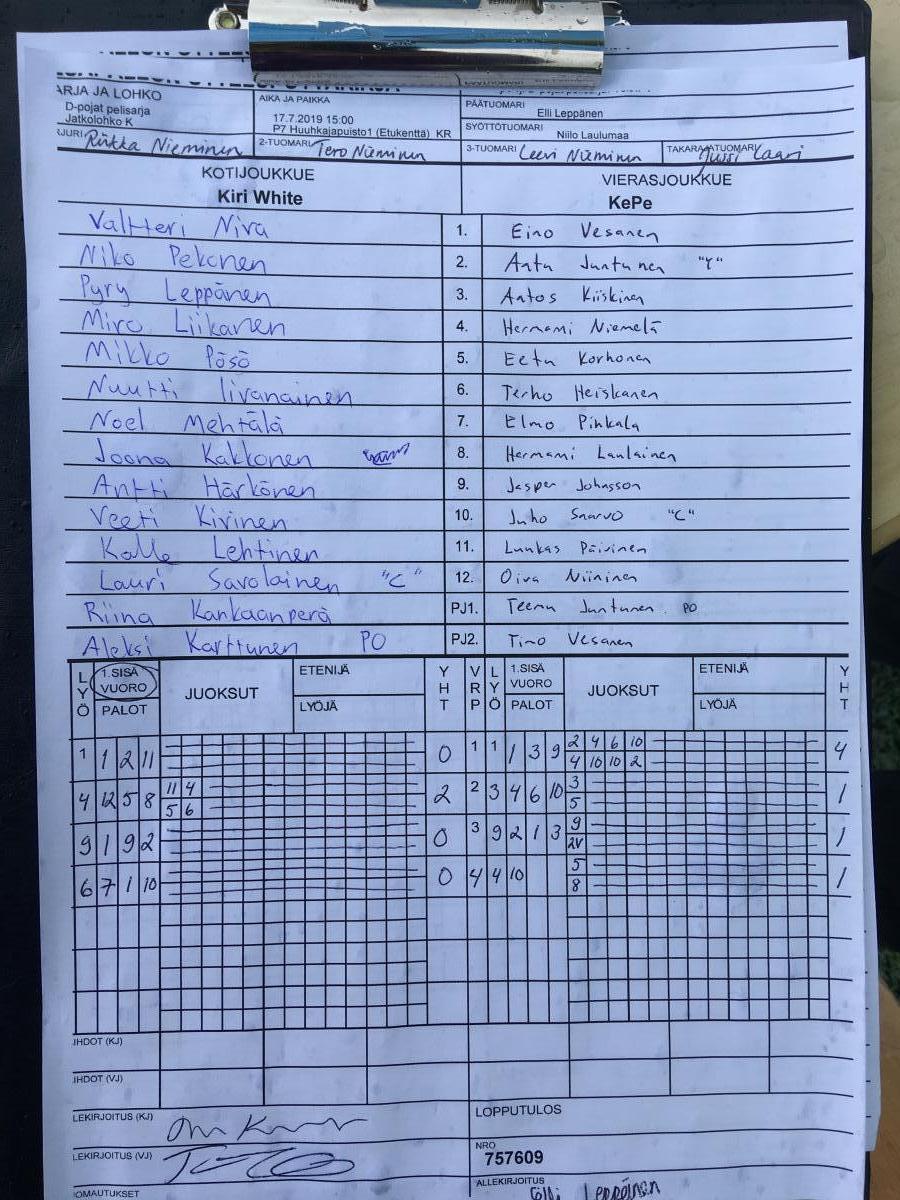 ARJA JA LOHKO
D-pojat pelisarja
Jatkolohko K
AIKA JA PAIKKA
17.7.2019 15:00
P7 Huuhkajapuisto1 (Etukenttä) KR
PÄÄTUOMARI
Elli Leppänen
SYÖTTÖTUOMARI
Niilo Laulumaa
JURI Riikka Nieminen 2-TUOMARI Tero Nieminen 3-TUOMARI Leevi Nieminen TAKARAJATUOMARI Jussi Kaari
KOTIJOUKKUE
Kiri White
VIERASJOUKKUE
KePe
Valtteri Niva 1. Eino Vesanen
Niko Pekonen 2. Antu Juntunen "Y"
Pyry Leppänen 3. Antos Kiiskinen
Miro Liikanen 4. Hermanni Niemelä
Mikko Pösö 5. Eetu Korhonen
Nuutti Iivanainen 6. Terho Heiskanen
Noel Mehtälä 7. Elmo Pihkala
Joona Kakkonen 8. Hermanni Laulainen
Antti Härkönen 9. Jesper Johnsson
Veeti Kivinen 10. Juho Snarvo "C"
Kalle Lehtinen 11. Luukas Päivinen
Lauri Savolainen "C" 12. Oiva Niininen
Riina Kankaanperä PJ1. Teemu Juntunen PO
Aleksi Karttunen PO PJ2. Timo Vesanen
LYÖ 1.SISÄ VUORO PALOT JUOKSUT ETENIJÄ LYÖJÄ YHT VRP LYÖ 1.SISÄ VUORO PALOT JUOKSUT ETENIJÄ LYÖJÄ YHT
1 1 2 11 0 1 1 1 3 9 2 4 6 10 4
4 10 10 2
4 12 5 8 11 4 2 2 3 4 6 10 3 1
5 6 5
9 1 9 2 0 3 9 2 1 3 9 1
2V
6 7 1 10 0 4 4 10 5 1
8
IHDOT (KJ)
IHDOT (VJ)
LEKIRJOITUS (KJ)
LEKIRJOITUS (VJ)
OMAUTUKSET
LOPPUTULOS
NRO
757609
ALLEKIRJOITUS
Elli Leppänen